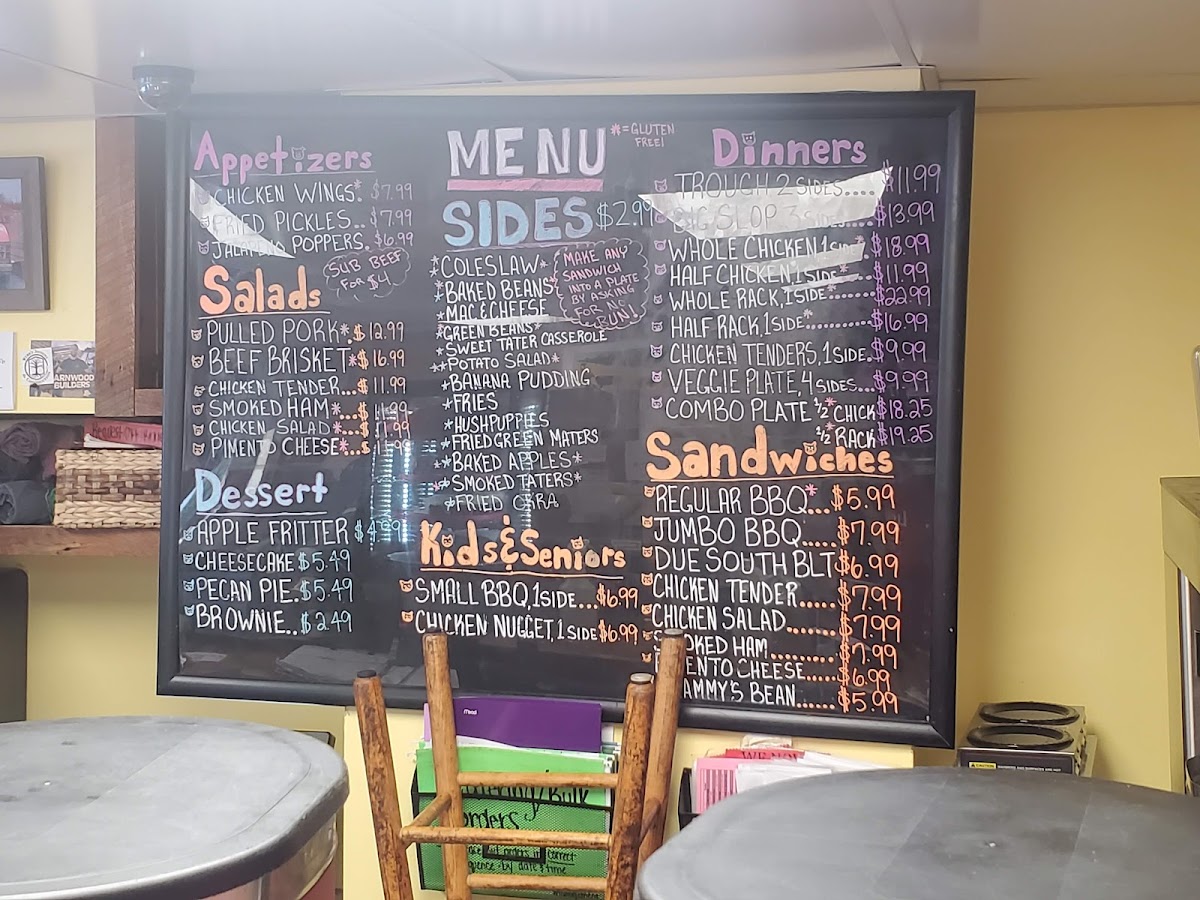 Appetizers
CHICKEN WINGS* $7.99
FRIED PICKLES.. $7.99
JALAPENO POPPERS. $6.99
SUB BEEF
FOR $4
Salads
PULLED PORK*. $12.99
BEEF BRISKET* $16.99
CHICKEN TENDER... $11.99
SMOKED HAM*... $11.99
CHICKEN SALAD*.... $11.99
PIMENTO CHEESE*.. $11.99
Dessert
APPLE FRITTER $4.99
CHEESECAKE $5.49
PECAN PIE. $5.49
BROWNIE.. $2.49
MENU
*=GLUTEN
FREE!
SIDES $2.99
*COLESLAW*
*BAKED BEANS
*MAC & CHEESE
*GREEN BEANS*
*SWEET TATER CASSEROLE
*POTATO SALAD*
*BANANA PUDDING
*FRIES
*HUSHPUPPIES
*FRIED GREEN MATERS
*BAKED APPLES*
*SMOKED TATERS*
*FRIED OKRA
MAKE ANY
SANDWICH
INTO A PLATE
BY ASKING
FOR NO
BUN!
Kids & Seniors
SMALL BBQ, 1 SIDE... $6.99
CHICKEN NUGGET, 1 SIDE $6.99
Dinners
TROUGH 2 SIDES.... $11.99
BIG SLOP 3 SIDES.... $13.99
WHOLE CHICKEN 1 SIDE* $18.99
HALF CHICKEN 1 SIDE* $11.99
WHOLE RACK, 1 SIDE* $22.99
HALF RACK, 1 SIDE* $16.99
CHICKEN TENDERS, 1 SIDE. $9.99
VEGGIE PLATE, 4 SIDES... $9.99
COMBO PLATE 1/2* CHICK $18.25
1/2* RACK $19.25
Sandwiches
REGULAR BBQ*... $5.99
JUMBO BBQ..... $7.99
DUE SOUTH BLT $6.99
CHICKEN TENDER..... $7.99
CHICKEN SALAD....... $7.99
SMOKED HAM......... $7.99
PIMENTO CHEESE..... $6.99
AMMY'S BEAN...... $5.99
ARNWOOD
BUILDERS
Mead
Bulk
orders
correct
by date & time
CAUTION